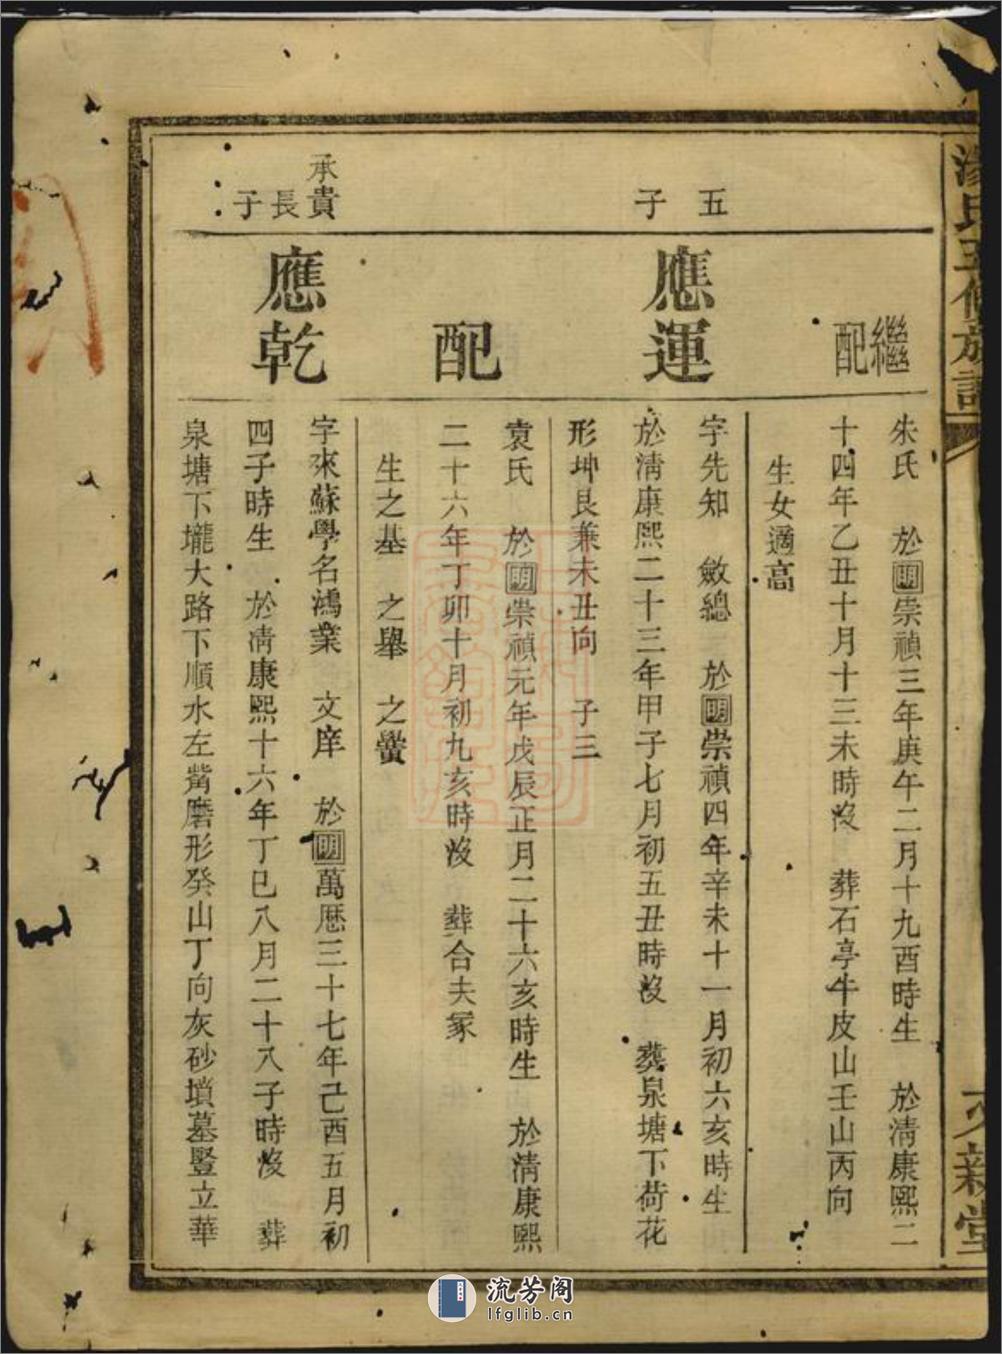 湯氏五修族譜
又新堂
繼配
朱氏　於明崇禎三年庚午二月十九酉時生　於清康熙二
十四年乙丑十月十三未時沒　葬石亭牛皮山壬山丙向
生女適高
五子
應運
字先知　斂總　於明崇禎四年辛未十一月初六亥時生
於清康熙二十三年甲子七月初五丑時沒　葬泉塘下荷花
形坤艮兼未丑向　子三
配
袁氏　於明崇禎元年戊辰正月二十六亥時生　於清康熙
二十六年丁卯十月初九亥時沒　葬合夫冢
生之基　之舉　之黌
承貴長子
應乾
字來蘇學名鴻業　文庠　於明萬歷三十七年己酉五月初
四子時生　於清康熙十六年丁巳八月二十八子時沒　葬
泉塘下壠大路下順水左觜磨形癸山丁向灰砂墳墓豎立華
流芳阁
lfglib.cn